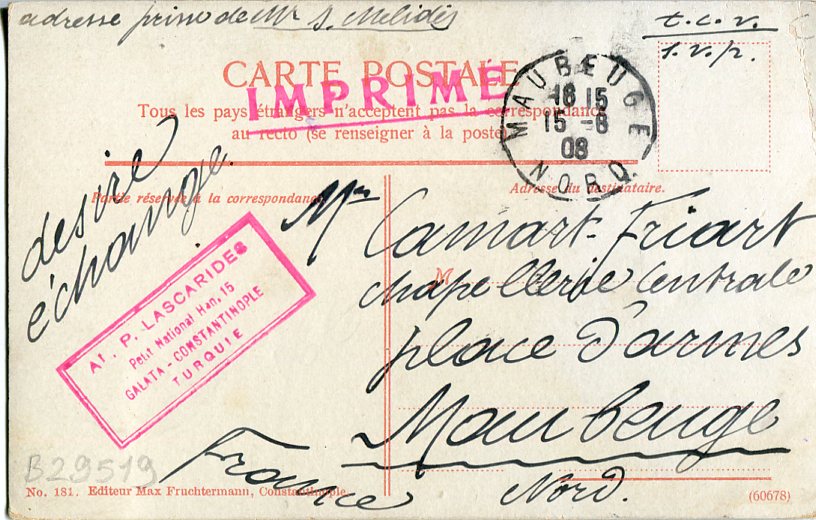 adresse prise de Mr S. Melidés
t.c.v.
s.v.p.
CARTE POSTALE
IMPRIMÉ
Tous les pays étrangers n'acceptent pas la correspondance
au recto (se renseigner à la poste)
MAUBEUGE
18 15
15 -8
08
NORD
Partie réservée à la correspondance
Adresse du destinataire.
désire
échange.
Mr
Camart-Friart
M
chapellerie Centrale
place d'armes
Maubeuge
Nord.
France
Al. P. LASCARIDES
Petit National Han, 15
GALATA - CONSTANTINOPLE
TURQUIE
B29519
No. 181. Editeur Max Fruchtermann, Constantinople.
(60678)